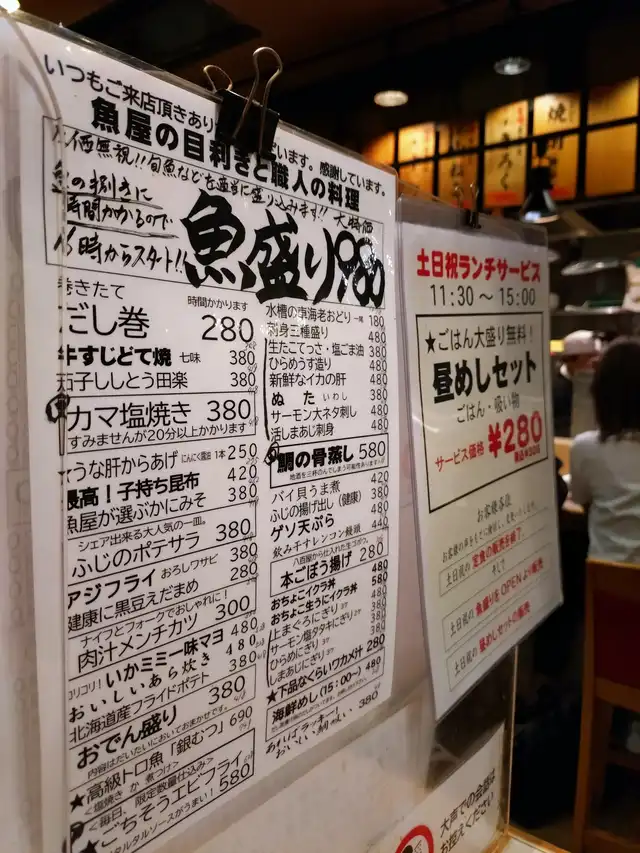 いつもご来店頂きあり
います。感謝しています。
魚屋の目利きと職人の料理
価無視!!旬魚などを適当に盛り込みます!!
大特価
魚の捌きに
時間かかるので
16時からスタート!!
魚盛り980
巻きたて
時間かかります
だし巻 280
牛すじどて焼 七味 380
茄子ししとう田楽 380
カマ塩焼き 380
すみませんが20分以上かかります
うな肝からあげ にんにく醤油 1本 250
最高!子持ち昆布 420
魚屋が選ぶかにみそ 380
シェア出来る大人気の一皿。
ふじのポテサラ 380
アジフライ おろしワサビ 380
健康に黒豆えだまめ 280
ナイフとフォークでおしゃれに!
肉汁メンチカツ 300
コリコリ!いかミミ一味マヨ 480
おいしいあら炊き 480
北海道産フライドポテト 380
おでん盛り 380
内容はだいたいにおいておまかせです。
★高級トロ魚「銀むつ」690
<塩焼き か 煮つけ>
<毎日、限定数量仕込み>
★ごちそうエビフライ 580
タルタルソースがうまい!
水槽の車海老おどり 一尾 180
刺身三種盛り 480
生たこてっさ・塩ごま油 380
ひらめうす造り 480
新鮮なイカの肝 480
ぬた いわし 380
サーモン大ネタ刺し 480
活しまあじ刺身 480
鯛の骨蒸し 580
地酒を三杯のんでしまう可能性あります
バイ貝うま煮 420
ふじの揚げ出し(健康) 380
ゲソ天ぷら 440
飲み干すレンコン饅頭 440
八百屋から仕入れた生ゴボウ。
本ごぼう揚げ 280
おちょこイクラ丼 480
おちょこ生うにイクラ丼 580
上まぐろにぎり 480
サーモン塩タタキにぎり
ひらめにぎり
しまあじにぎり
★下品なくらいワカメ汁 280
海鮮めし(15:00~) 480
あればラッキー!
おいしい鯛の 380
土日祝ランチサービス
11:30 ~ 15:00
★ごはん大盛り無料!
昼めしセット
ごはん・吸い物
サービス価格 ¥280
お客様各位
土日祝の定食の販売を終了
そして
土日祝の魚盛りをOPENより販売
土日祝の昼めしセットの販売
大声での会話は
お控えください